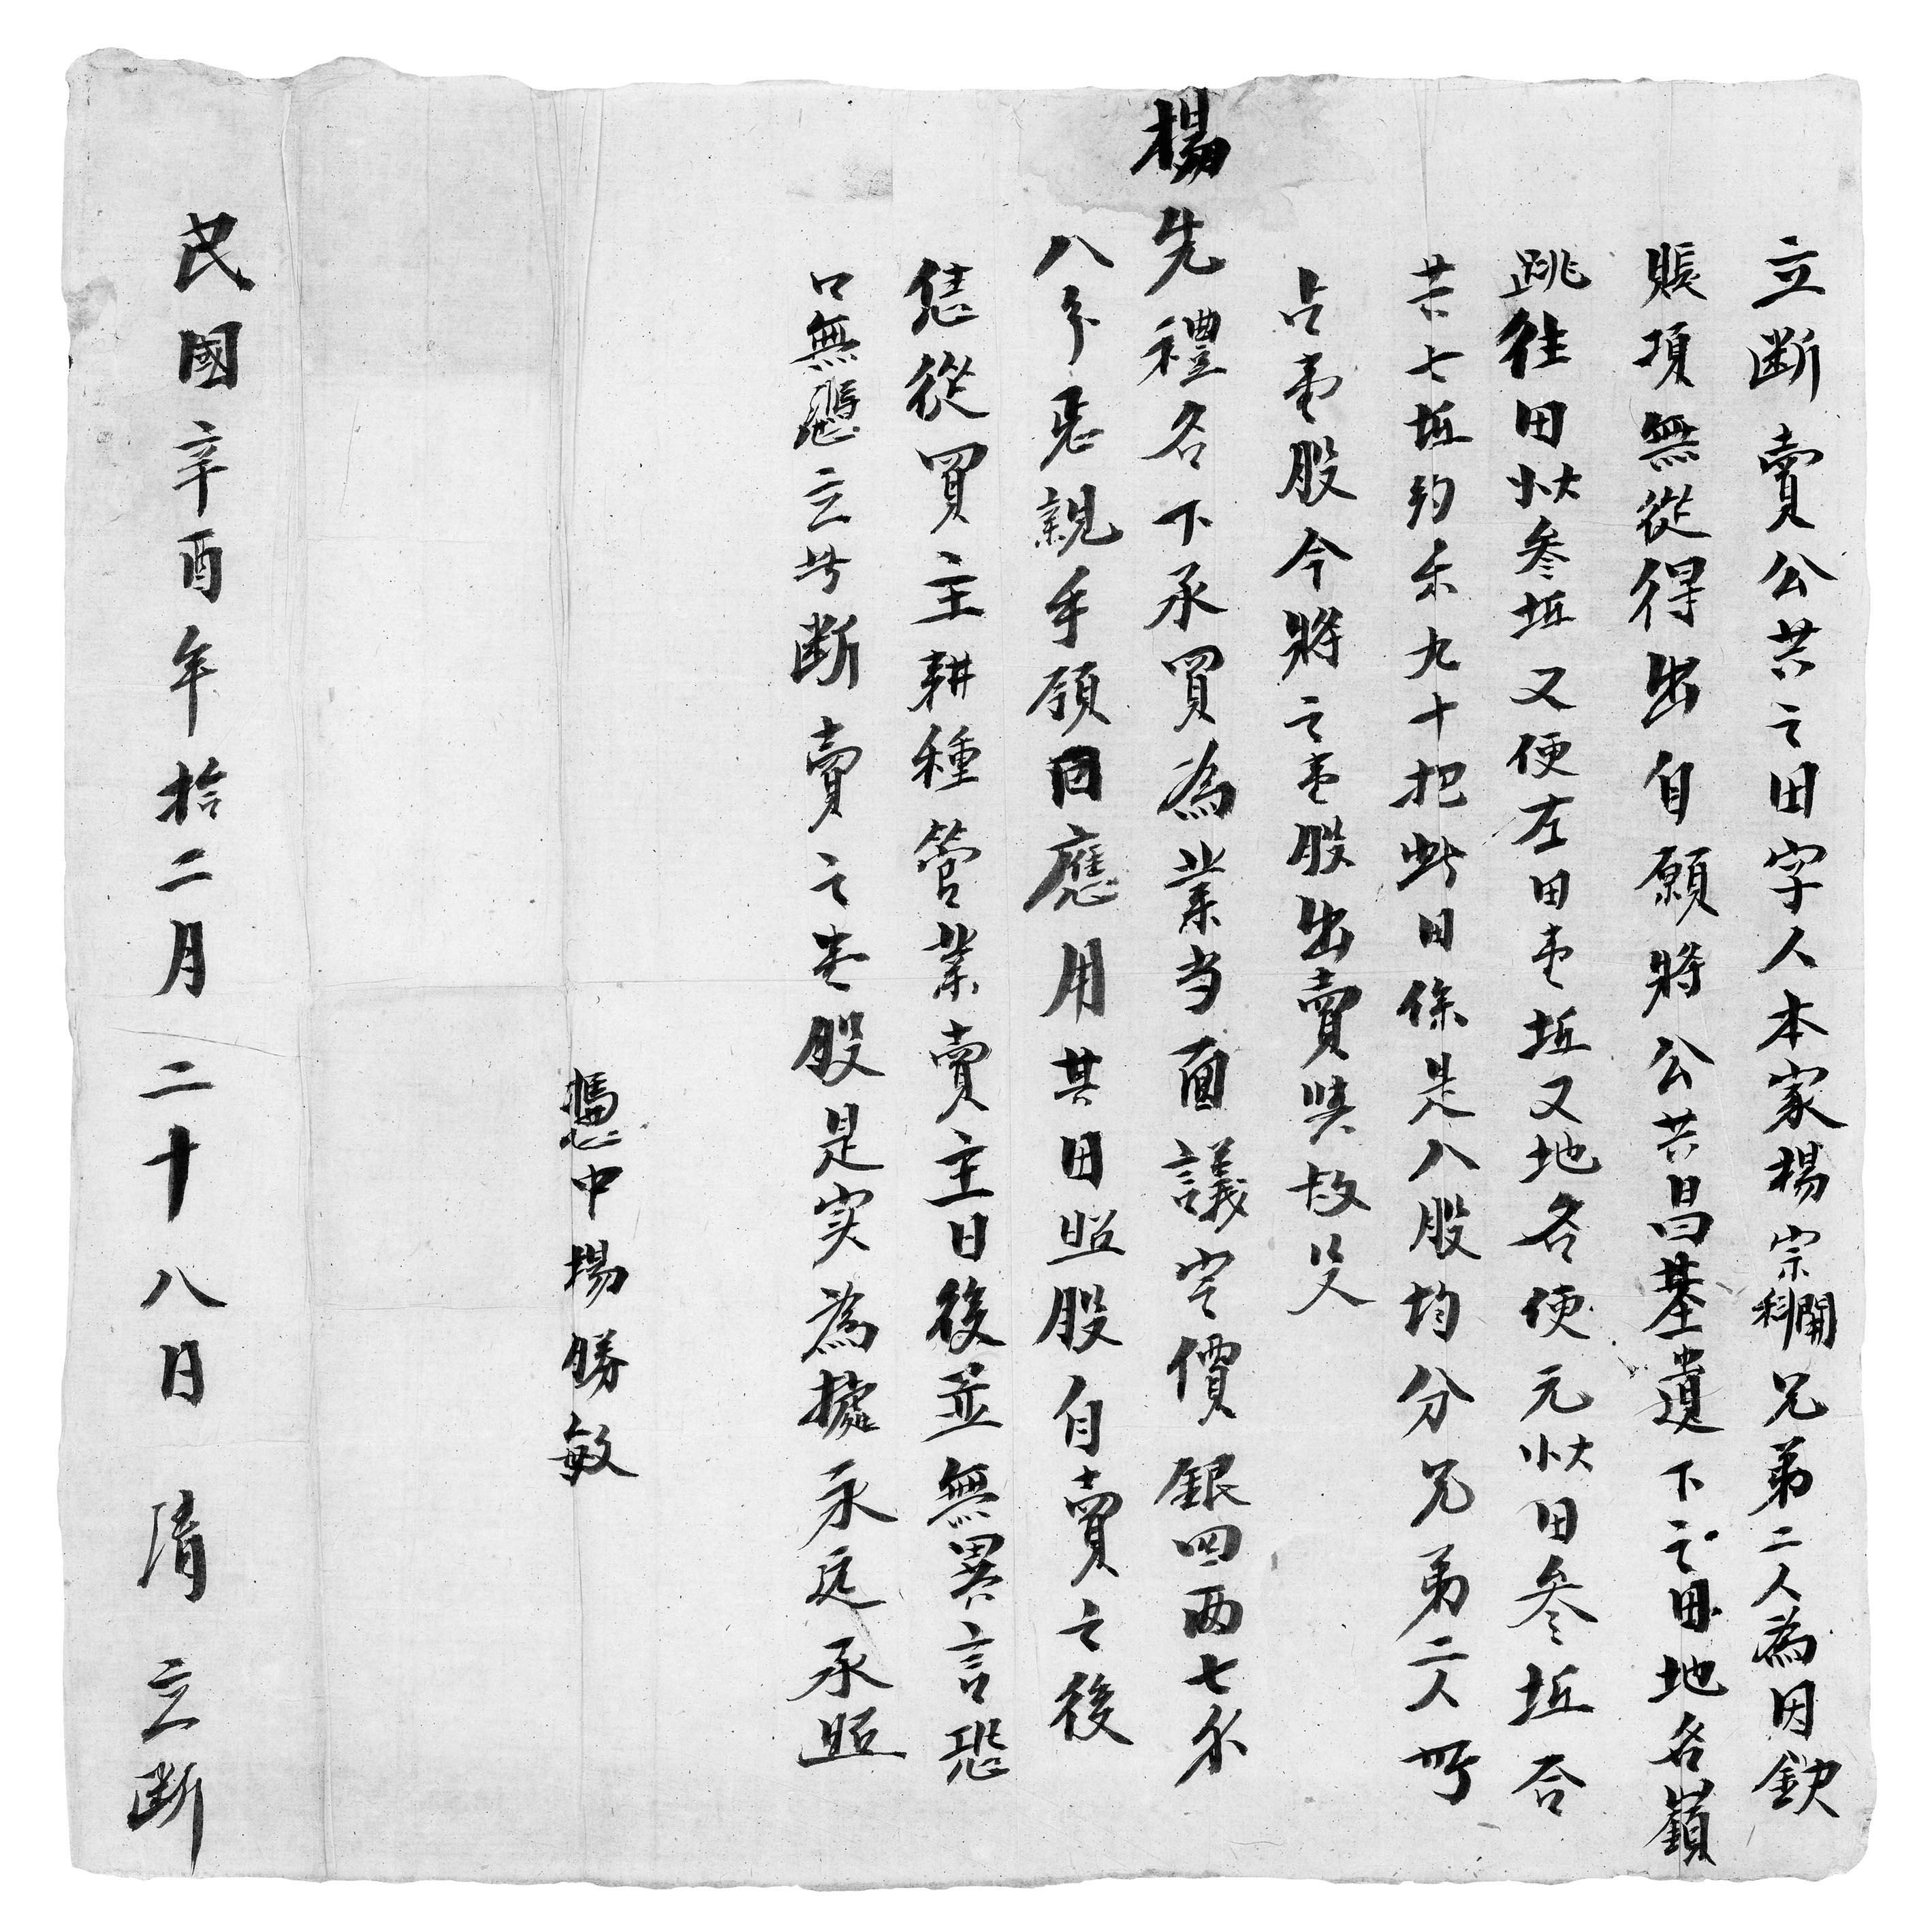 立断賣公共之田字人本家楊宗開科兄弟二人為因欽
賬項無從得出自願將公共昌基遺下之田地名嶺
跳往田大小叁坵又便左田壹坵又地名便元大小田叁坵合
共七坵約禾九十把此田係是八股均分兄弟二人所
占壹股今將之壹股出賣與故父
楊先禮名下承買為業当面議定價銀四両七錢
八分悉親手領回應用其田照股自賣之後
恁從買主耕種管業賣主日後並無異言恐
口無憑立此断賣之壹股是实為據永遠承照
憑中楊勝敏
民國辛酉年拾二月二十八日 清 立断